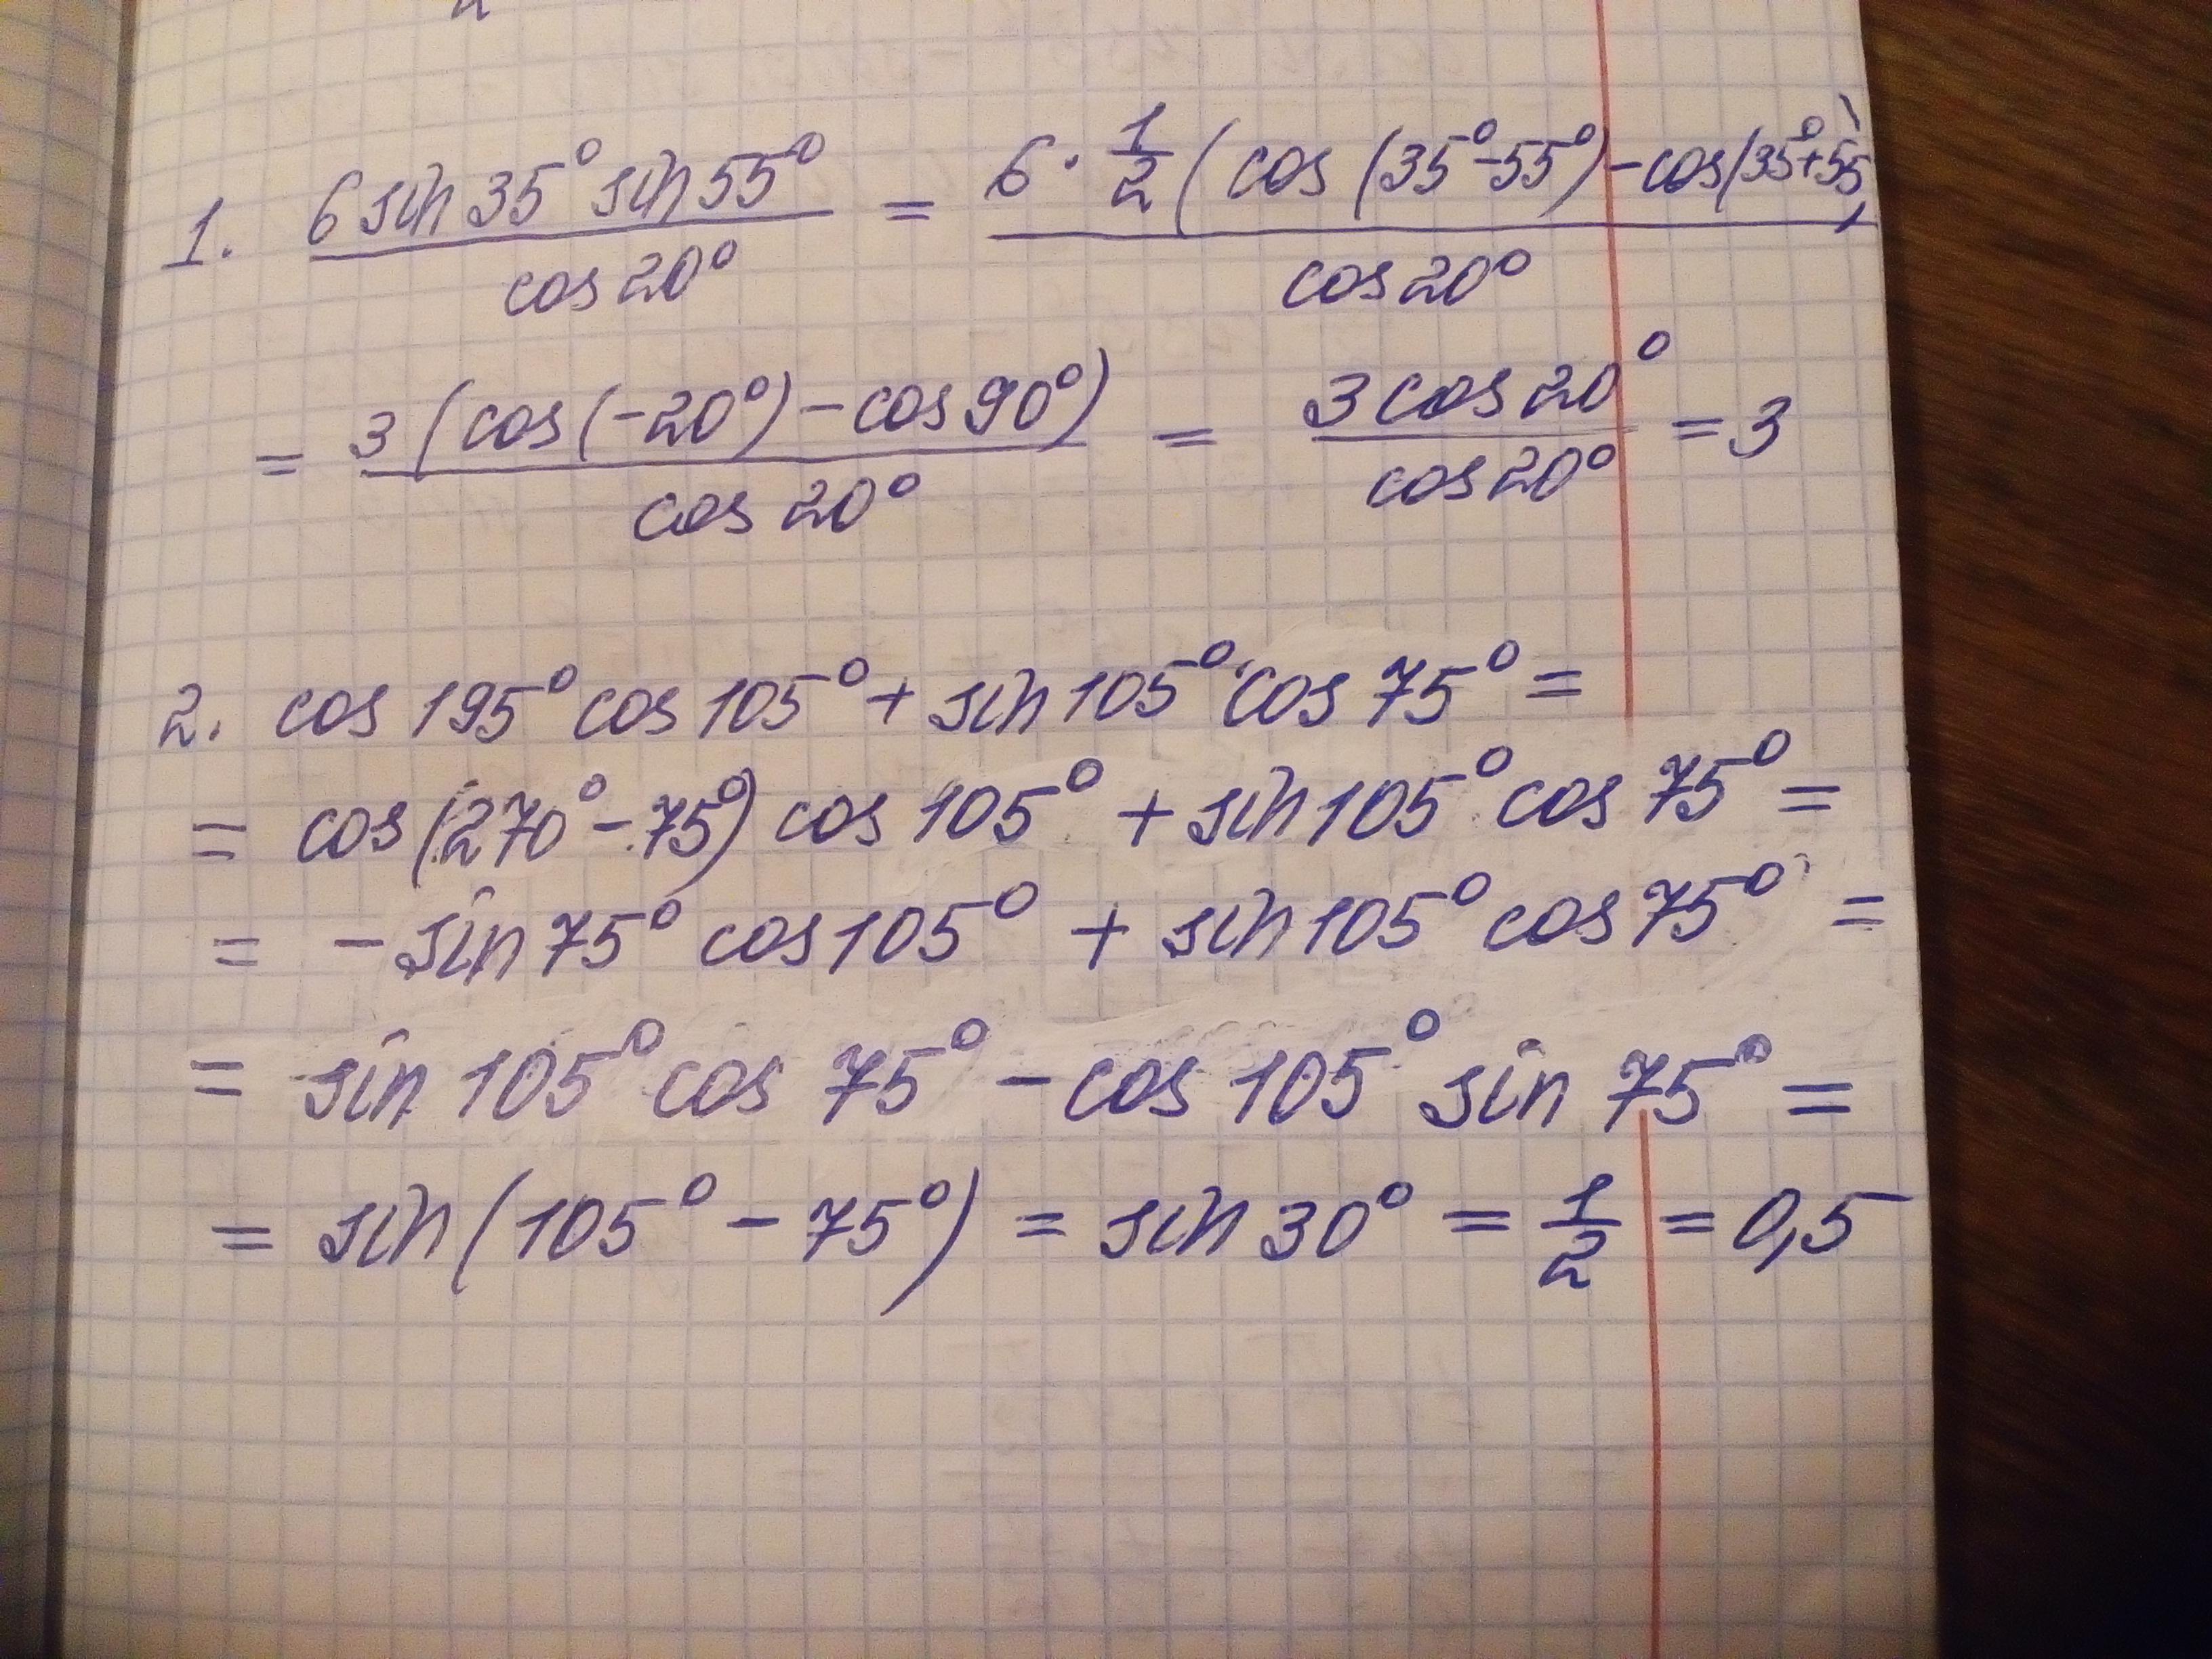 1. 6 sin 35° sin 55° / cos 20° = 6 · 1/2 (cos (35° - 55°) - cos (35° + 55)) / cos 20°
= 3 (cos (-20°) - cos 90°) / cos 20° = 3 cos 20° / cos 20° = 3
2. cos 195° cos 105° + sin 105° cos 75° =
= cos (270° - 75°) cos 105° + sin 105° cos 75° =
= - sin 75° cos 105° + sin 105° cos 75° =
= sin 105° cos 75° - cos 105° sin 75° =
= sin (105° - 75°) = sin 30° = 1/2 = 0,5